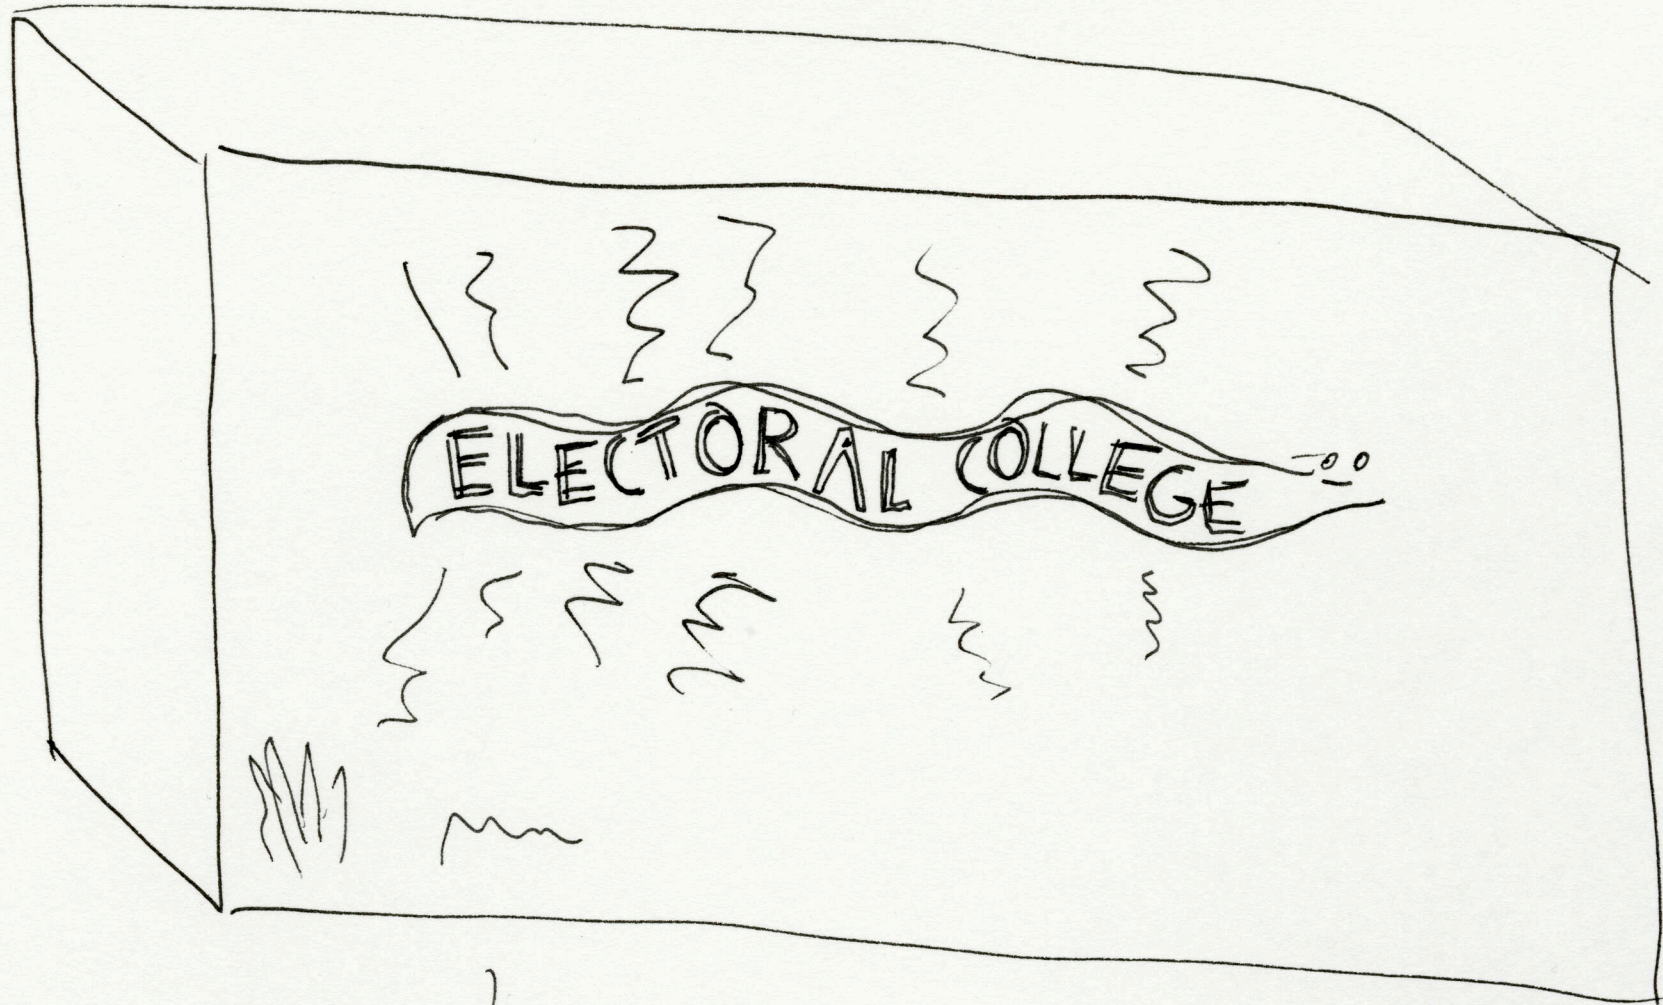 ELECTORAL COLLEGE